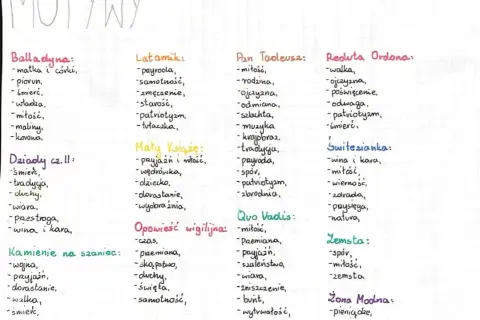 MOTYWY
Balladyna:
- matka i córki,
- piorun,
- śmierć,
- władza,
- miłość,
- maliny,
- korona.
Dziady cz. II:
- śmierć,
- tradycja,
- duchy,
- wiara,
- przestroga,
- wina i kara,
Kamienie na szaniec:
- wojna,
- przyjaźń,
- dorastanie,
- walka,
- śmierć,
Latarnik:
- przyroda,
- samotność,
- zmęczenie,
- starość,
- patriotyzm,
- tułaczka,
Mały Książę:
- przyjaźń i miłość,
- wędrówka,
- dziecko,
- dorastanie,
- wyobraźnia,
Opowieść wigilijna:
- czas,
- przemiana,
- skąpstwo,
- duchy,
- święta,
- samotność,
Pan Tadeusz:
- miłość,
- rodzina,
- ojczyzna,
- odmiana,
- szlachta,
- muzyka
- krajobraz,
- tradycja,
- przyroda,
- spór,
- patriotyzm,
- zbrodnia,
Quo Vadis:
- miłość,
- przemiana,
- przyjaźń,
- szaleństwo,
- wiara,
- zniszczenie,
- bunt,
- wytrwałość,
Reduta Ordona:
- walka,
- ojczyzna,
- poświęcenie,
- odwaga,
- patriotyzm,
- śmierć,
Świtezianka:
- wina i kara,
- miłość,
- wierność,
- zdrada,
- przysięga,
- natura,
Zemsta:
- spór,
- miłość,
- zemsta
Żona Modna:
- pieniądze,